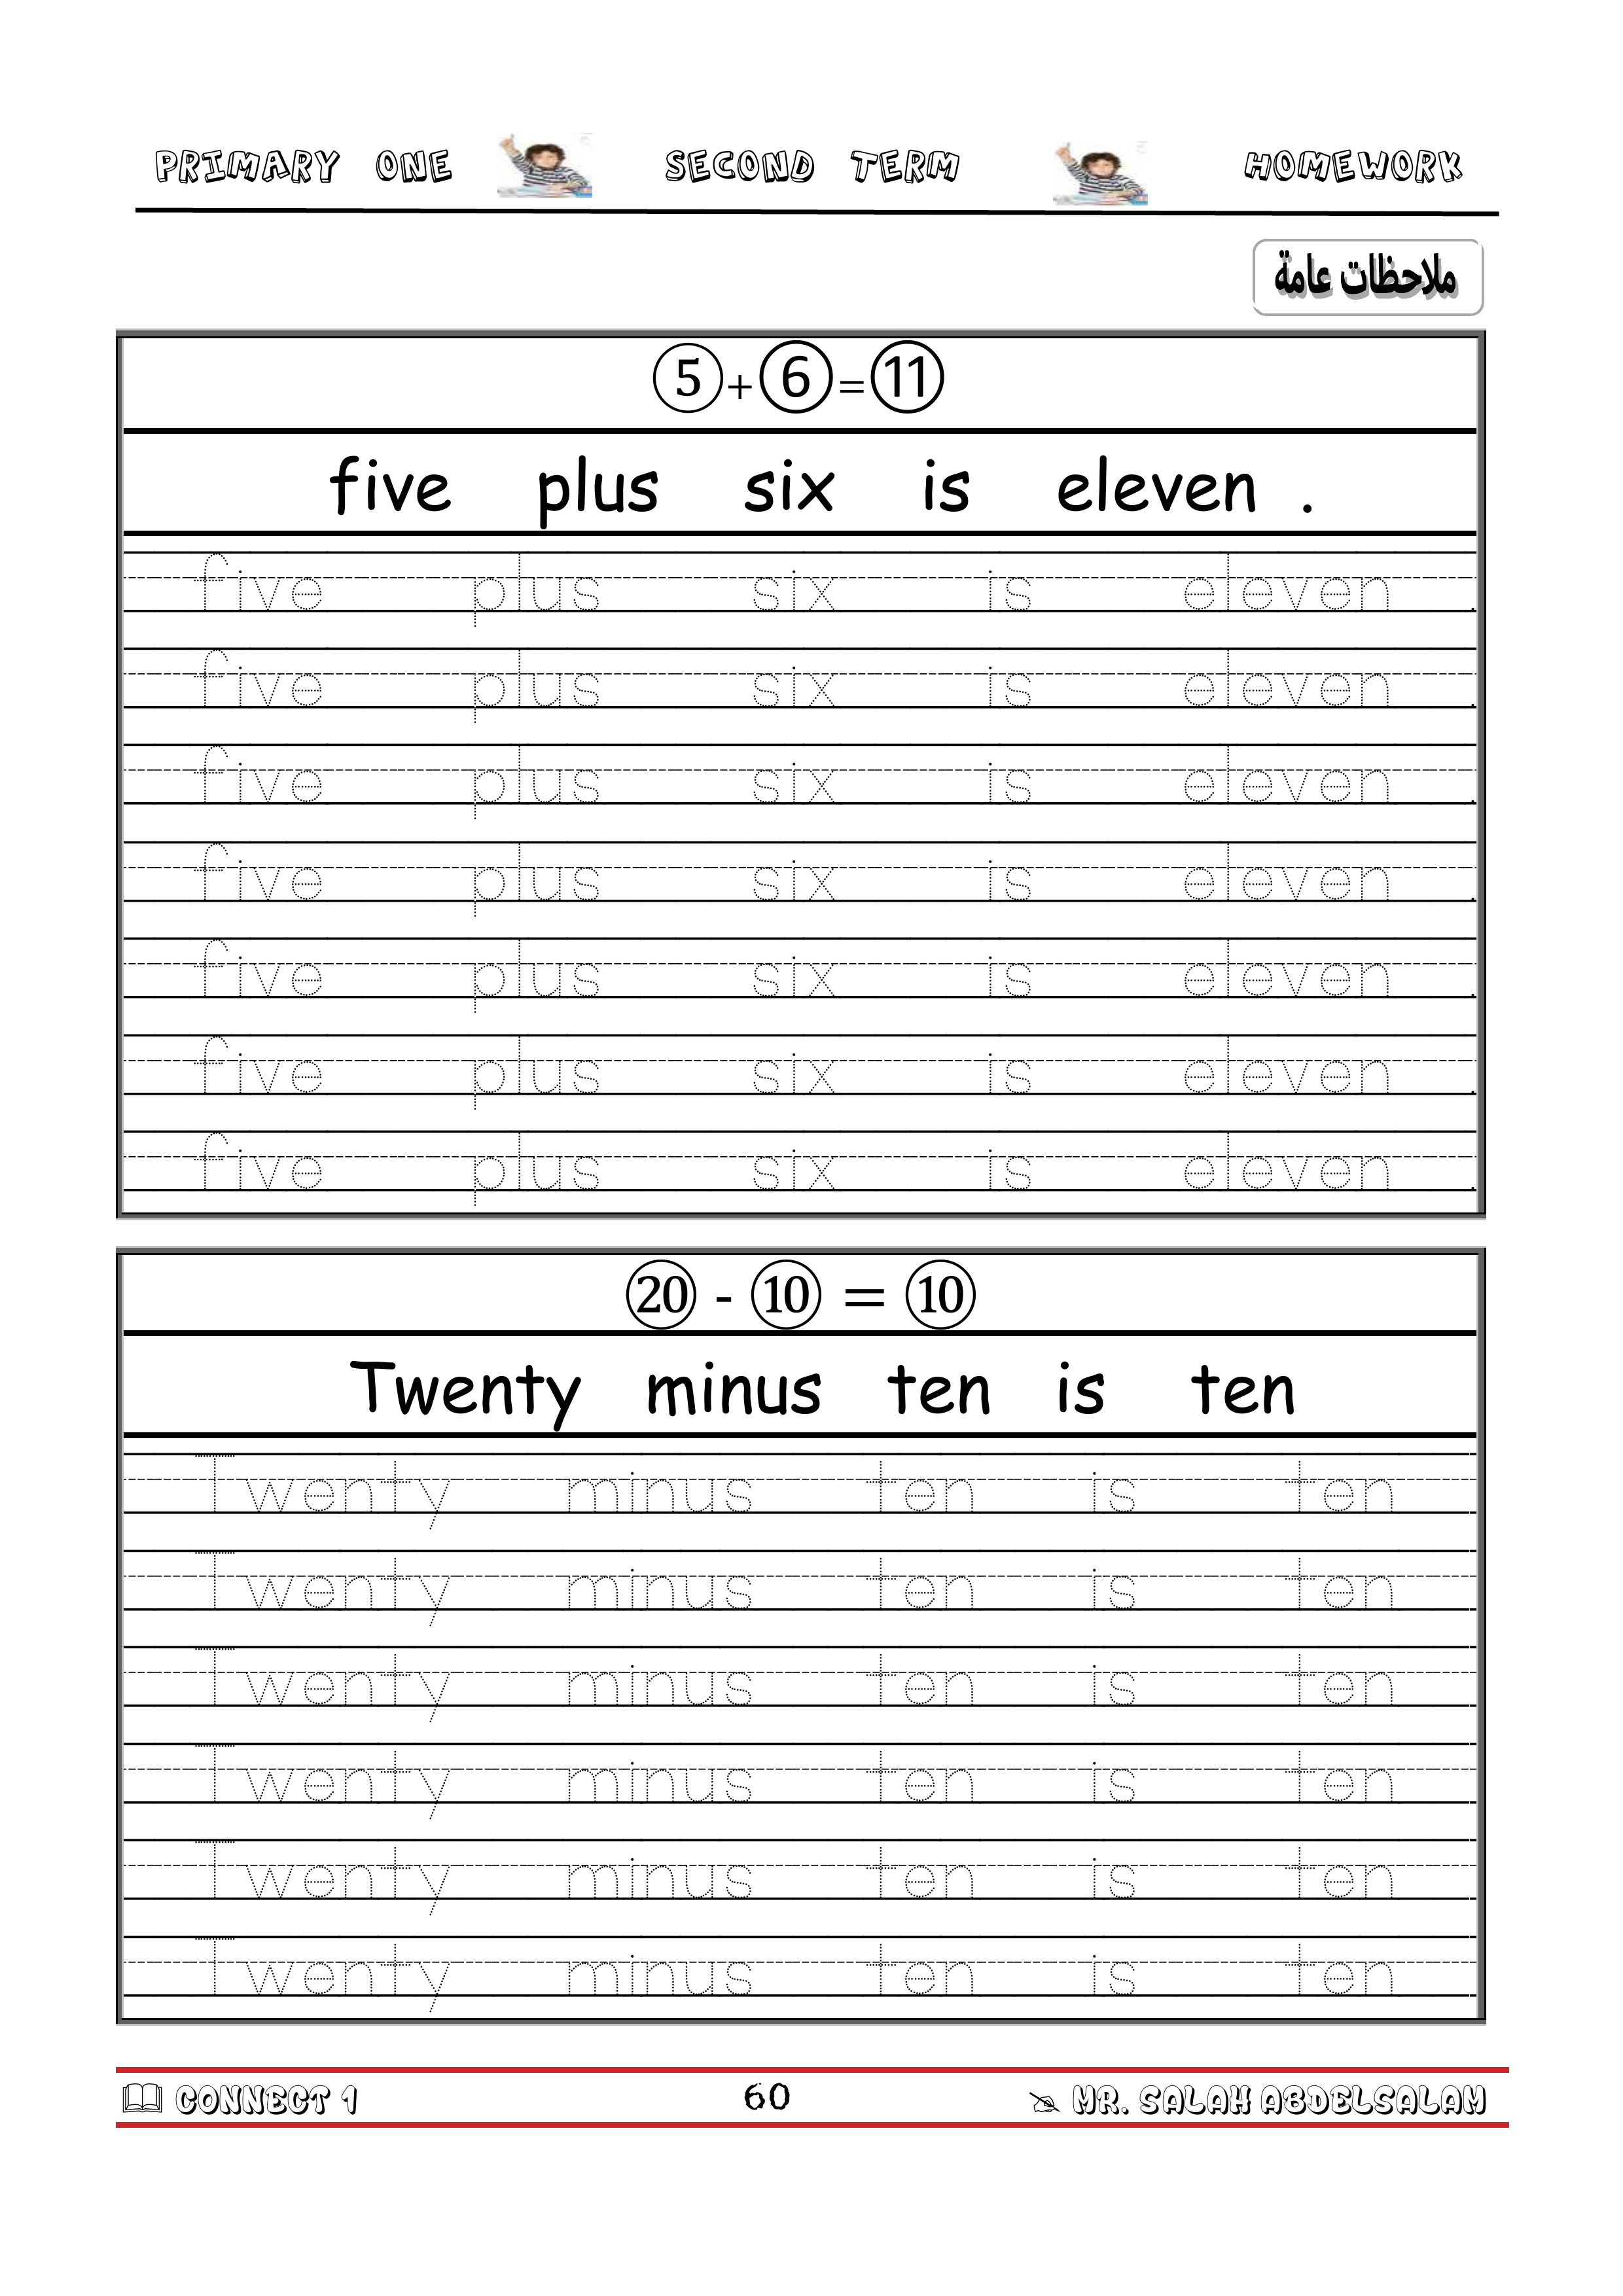 PRIMARY ONE SECOND TERM HOMEWORK
ملاحظات عامة
⑤+⑥=⑪
five plus six is eleven .
five plus six is eleven .
five plus six is eleven .
five plus six is eleven .
five plus six is eleven .
five plus six is eleven .
five plus six is eleven .
five plus six is eleven .
⑳ - ⑩ = ⑩
Twenty minus ten is ten
Twenty minus ten is ten
Twenty minus ten is ten
Twenty minus ten is ten
Twenty minus ten is ten
Twenty minus ten is ten
Twenty minus ten is ten
CONNECT 1 60 MR. SALAH ABDELSALAM